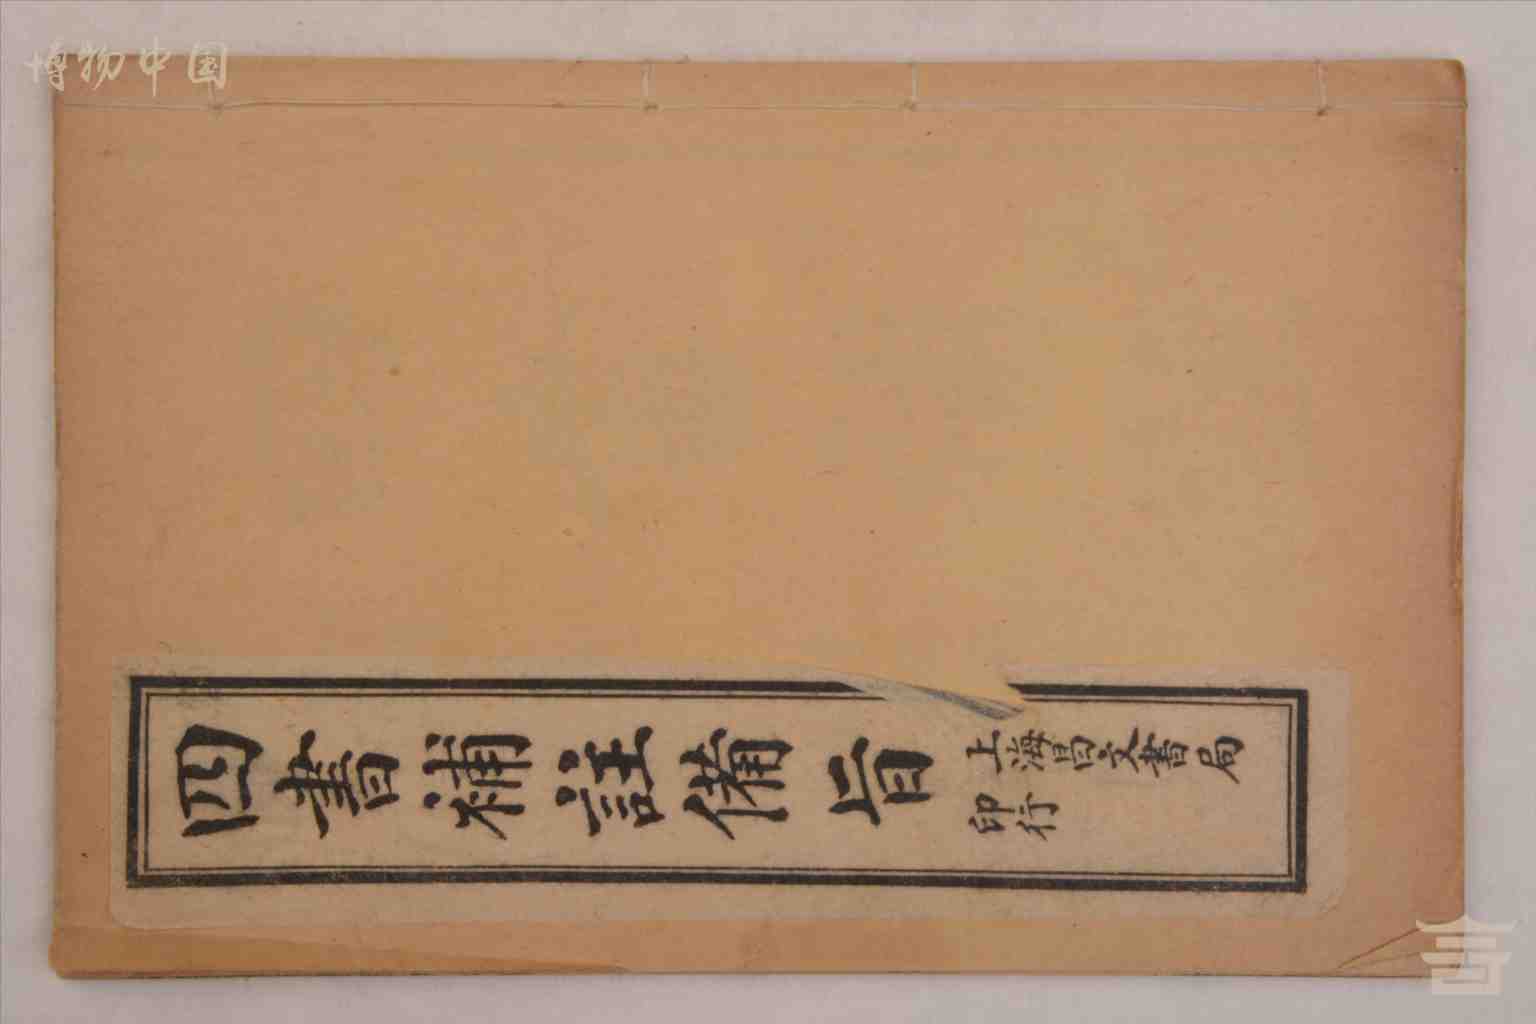 博物中国
四書補註備旨
上海昌文書局
印行